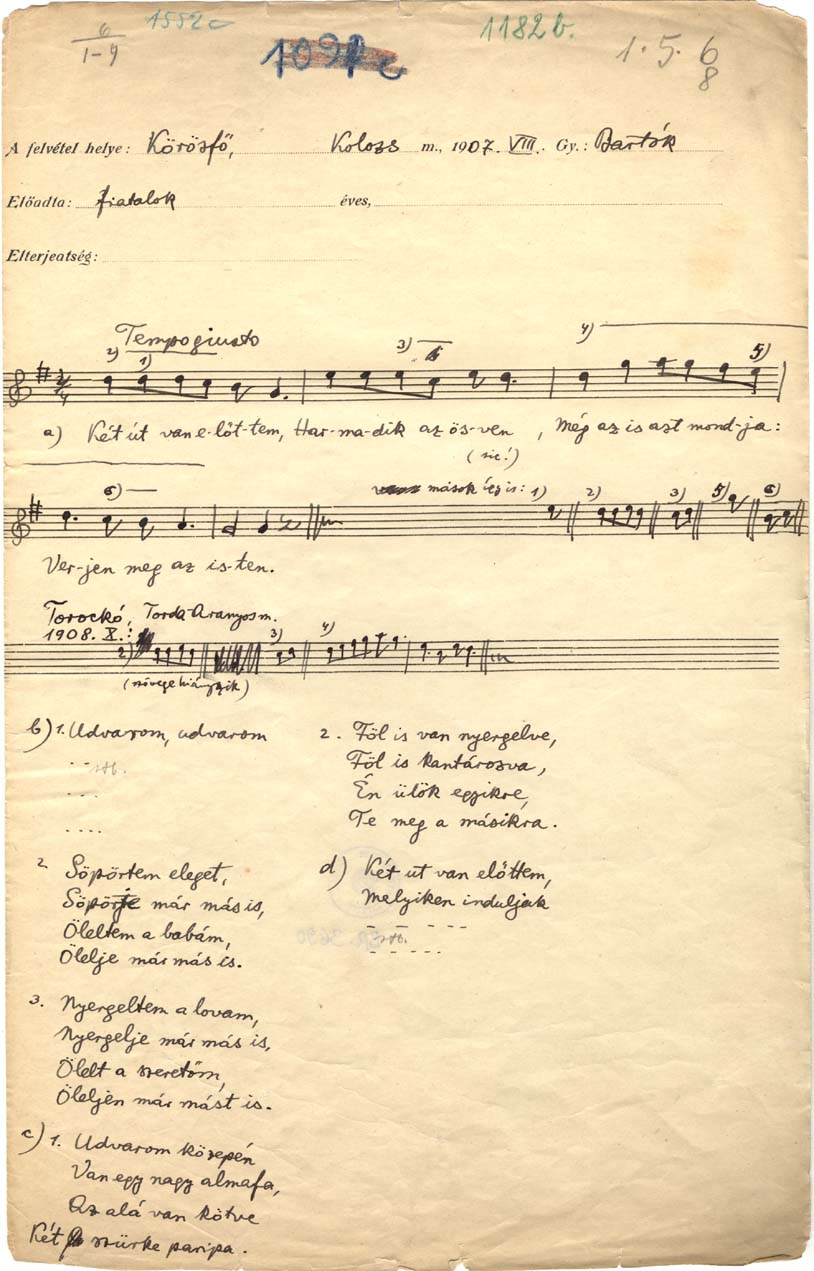 6
1-9
1552c
1091c
1182b.
1. 5. 6
8
A felvétel helye: Körösfő, Kolozs m., 1907. VIII. Gy.: Bartók
Előadta: fiatalok éves,
Elterjeatség:
Tempo giusto
2) 1) 3) 4) 5)
a) Két út van e-lőt-tem, Har-ma-dik az ös-ven, Még az is azt mond-ja:
(sic!)
6) mások így is: 1) 2) 3) 5) 6)
Ver-jen meg az is-ten.
Torockó, Torda-Aranyos m.
1908. X.: 2) 3) 4)
(szövege hiányzik)
b) 1. Udvarom, udvarom
. . stb.
. . .
. . . .
2 Söpörtem eleget,
Söpörje már más is,
Öleltem a babám,
Ölelje már más is.
3. Nyergeltem a lovam,
Nyergelje már más is,
Ölelt a szeretőm,
Öleljén már mást is.
c) 1. Udvarom közepén
Van egy nagy almafa,
Az alá van kötve
Két szürke paripa.
2. Föl is van nyergelve,
Föl is kantározva,
Én ülök egyikre,
Te meg a másikra.
d) Két ut van előttem,
Melyiken induljak
- stb. - - - -
- - - - -